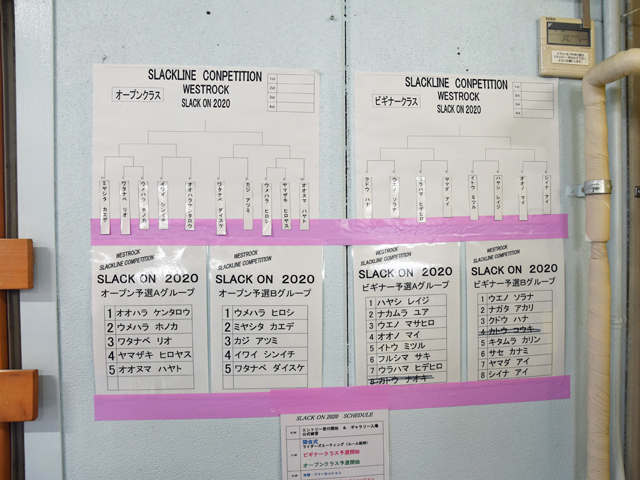 SLACKLINE CONPETITION
WESTROCK
SLACK ON 2020
オープンクラス
1st
2nd
3rd
4th
ミヤシタ カエデ
ワタナベ リオ
ウメハラ ホノカ
イワイ シンイチ
オオハラ ケンタロウ
ワタナベ ダイスケ
カジ アツミ
ウメハラ ヒロシ
ヤマザキ ヒロヤス
オオスマ ハヤト
SLACKLINE CONPETITION
WESTROCK
SLACK ON 2020
ビギナークラス
1st
2nd
3rd
4th
クドウ ハナ
ウエノ ソラナ
ウラハマ ヒデヒロ
ヤマダ アイ
イトウ ミツル
ハヤシ レイジ
オオノ マイ
シイナ アイ
WESTROCK
SLACKLINE COMPETITION
SLACK ON 2020
オープン予選Aグループ
1 オオハラ ケンタロウ
2 ウメハラ ホノカ
3 ワタナベ リオ
4 ヤマザキ ヒロヤス
5 オオスマ ハヤト
WESTROCK
SLACKLINE COMPETITION
SLACK ON 2020
オープン予選Bグループ
1 ウメハラ ヒロシ
2 ミヤシタ カエデ
3 カジ アツミ
4 イワイ シンイチ
5 ワタナベ ダイスケ
WESTROCK
SLACKLINE COMPETITION
SLACK ON 2020
ビギナー予選Aグループ
1 ハヤシ レイジ
2 ナカムラ ユア
3 ウエノ マサヒロ
4 オオノ マイ
5 イトウ ミツル
6 フルシマ サキ
7 ウラハマ ヒデヒロ
8 カトウ ナオキ
WESTROCK
SLACKLINE COMPETITION
SLACK ON 2020
ビギナー予選Bグループ
1 ウエノ ソラナ
2 ナガタ アカリ
3 クドウ ハナ
4 カトウ コウキ
5 キタムラ カリン
6 サセ カナミ
7 ヤマダ アイ
8 シイナ アイ
SLACK ON 2020 SCHEDULE
エントリー受付開始 & ギャラリー入場
開会式
ライダーズミーティング（ルール説明）
ビギナークラス予選開始
オープンクラス予選開始